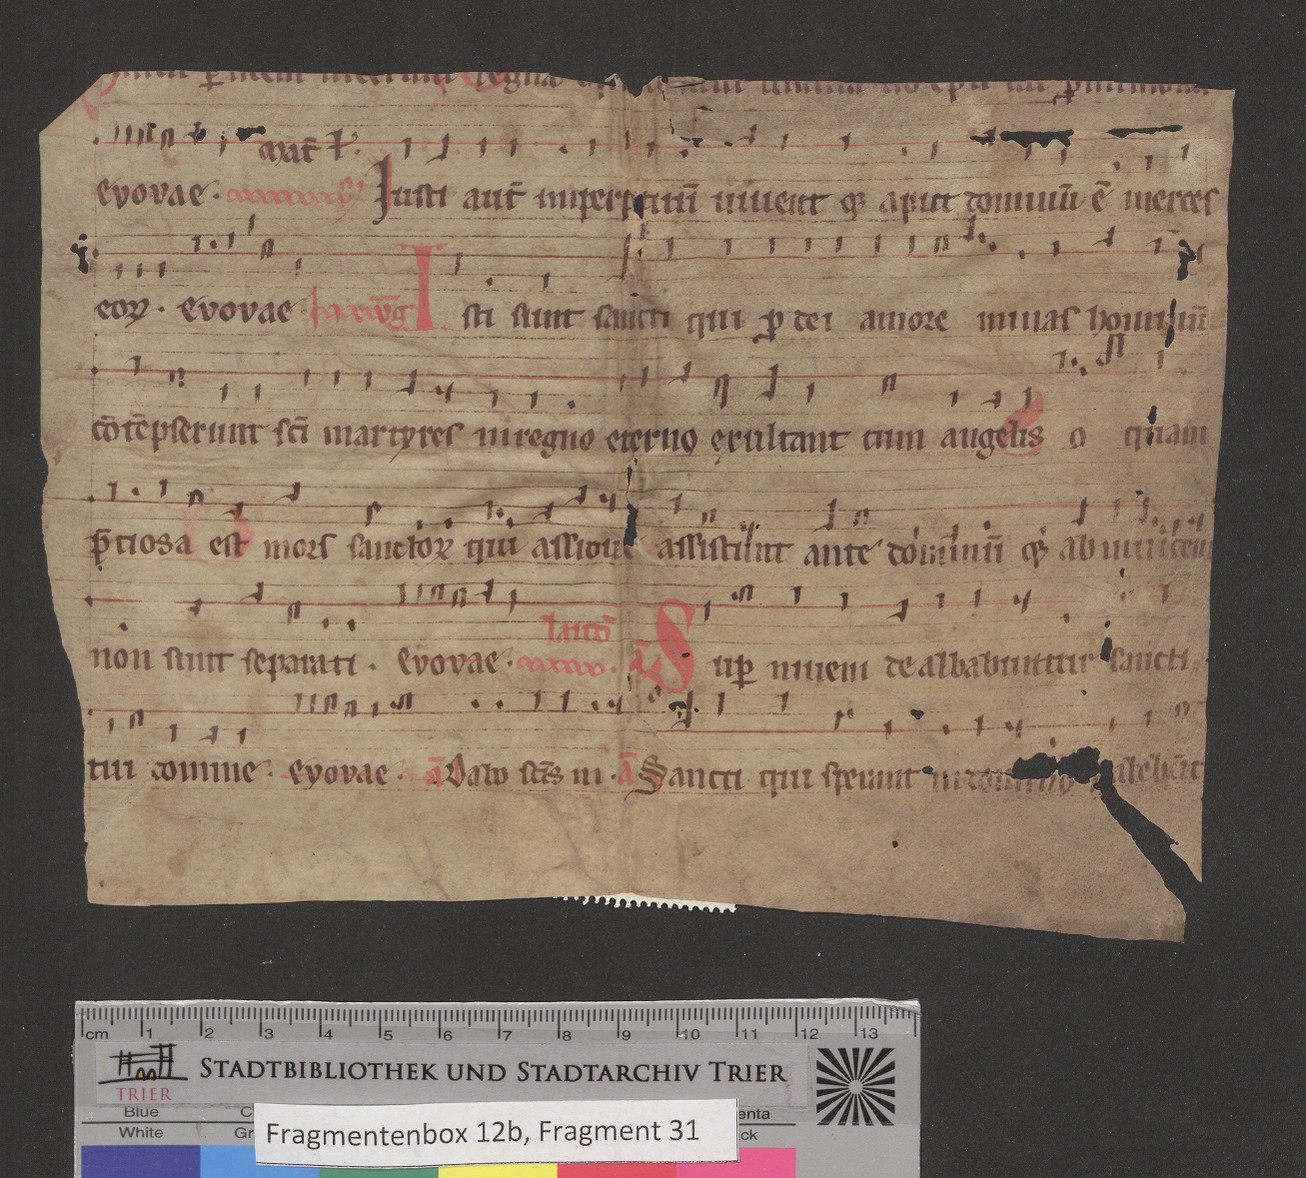 evovae. Mat̄ Iusti aut̄ imperpetuū uiuent & apud dominū ē merces
eoꝝ. evovae In evḡ Isti sunt sancti qui ꝓ dei amore minas hominū
cōtēpserunt scī martyres in regno eterno exultant cum angelis o quam
p̄ciosa est mors sanctoꝝ qui assidue assistunt ante dominū & ab inuicem
non sunt separati. evovae. laud̄ Sup̄ niuem dealbabuntur sancti
tui domine. evovae. ā Dabo scīs m. ā Sancti qui sperant in domino habebūt
cm 1 2 3 4 5 6 7 8 9 10 11 12 13
STADTBIBLIOTHEK UND STADTARCHIV TRIER
TRIER
Blue
White
Fragmentenbox 12b, Fragment 31